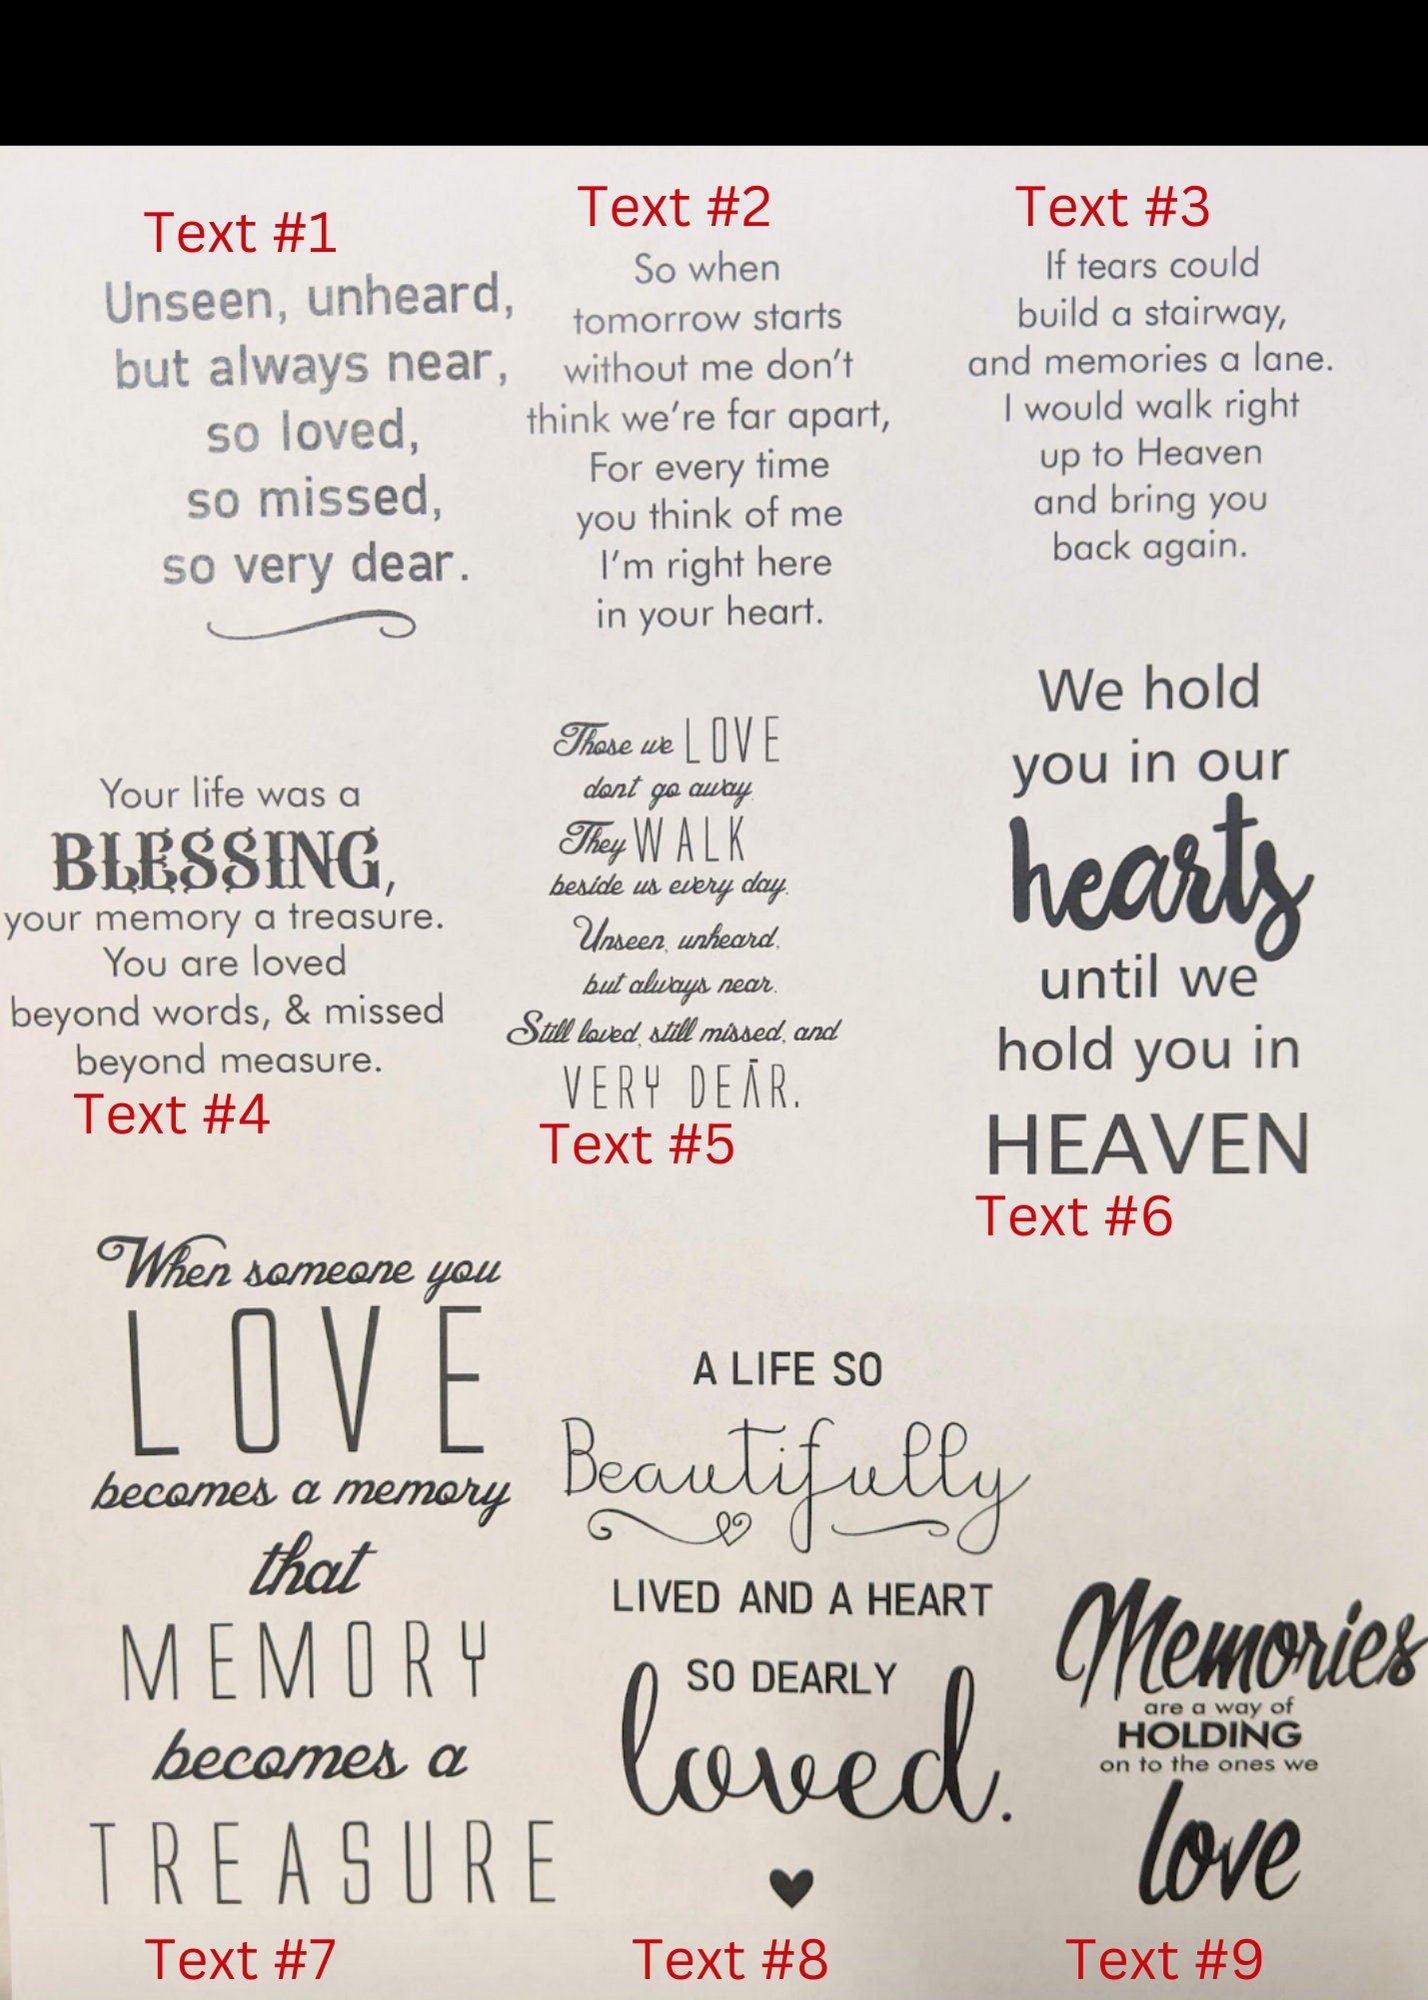 Text #1
Unseen, unheard,
but always near,
so loved,
so missed,
so very dear.
Text #2
So when
tomorrow starts
without me don't
think we're far apart,
For every time
you think of me
I'm right here
in your heart.
Text #3
If tears could
build a stairway,
and memories a lane.
I would walk right
up to Heaven
and bring you
back again.
Your life was a
BLESSING,
your memory a treasure.
You are loved
beyond words, & missed
beyond measure.
Text #4
Those we LOVE
dont go away.
They WALK
beside us every day.
Unseen, unheard,
but always near.
Still loved, still missed, and
VERY DEĀR.
Text #5
We hold
you in our
hearts
until we
hold you in
HEAVEN
Text #6
When someone you
LOVE
becomes a memory
that
MEMORY
becomes a
TREASURE
Text #7
A LIFE SO
Beautifully
LIVED AND A HEART
SO DEARLY
loved.
Text #8
Memories
are a way of
HOLDING
on to the ones we
love
Text #9